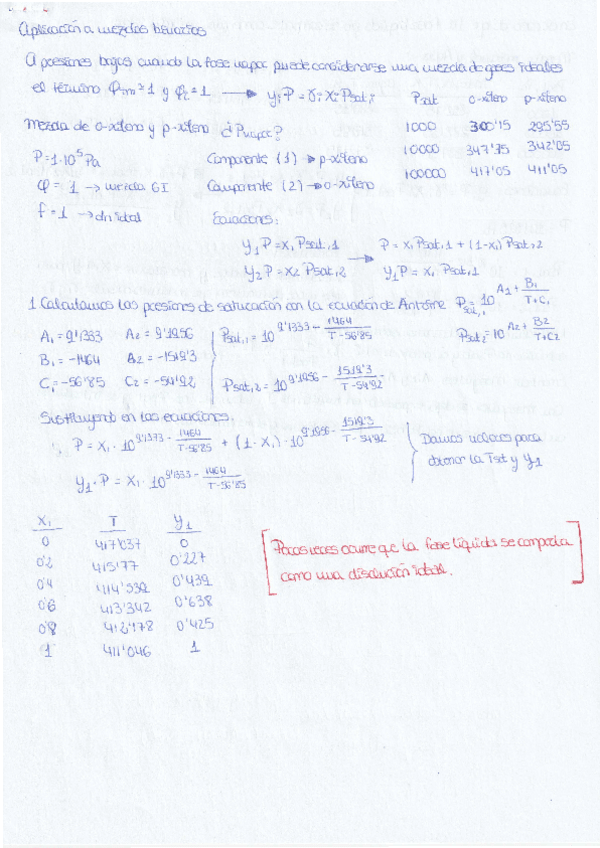 Aplicación a mezclas binarias
A presiones bajas cuando la fase vapor puede considerarse una mezcla de gases ideales
el término φi,m ≃ 1 y φi = 1 → yi P = γi xi Psat,i
Psat o-xileno p-xileno
1000 300'15 295'55
10000 347'75 342'05
100000 417'05 411'05
Mezcla de o-xileno y p-xileno ¿Pvapor?
P = 1·10⁵ Pa Componente (1) → p-xileno
φ = 1 → mezcla GI Componente (2) → o-xileno
f = 1 → dn ideal Ecuaciones:
y₁P = x₁ Psat,1 → P = x₁ Psat,1 + (1-x₁) Psat,2
y₂P = x₂ Psat,2 y₁P = x₁ Psat,1
1. Calculamos las presiones de saturación con la ecuación de Antoine Psat,1 = 10^(A₁ + B₁/(T+C₁))
Psat,2 = 10^(A₂ + B₂/(T+C₂))
A₁ = 9'1333 A₂ = 9'1956 Psat,1 = 10^(9'1333 - 1464/(T-56'85))
B₁ = -1464 A₂ = -1519'3
C₁ = -56'85 C₂ = -54'92 Psat,2 = 10^(9'1956 - 1519'3/(T-54'92))
Sustituyendo en las ecuaciones:
P = x₁ · 10^(9'1373 - 1464/(T-56'85)) + (1-x₁) · 10^(9'1956 - 1519'3/(T-54'92))
y₁ · P = x₁ · 10^(9'1333 - 1464/(T-56'85))
Damos valores para
obtener la Tsat y y₁
x₁ T y₁
0 417'037 0
0'2 415'77 0'227
0'4 414'532 0'439
0'6 413'342 0'638
0'8 412'178 0'425
1 411'046 1
[Pocas veces ocurre que la fase líquida se comporta
como una disolución ideal.]